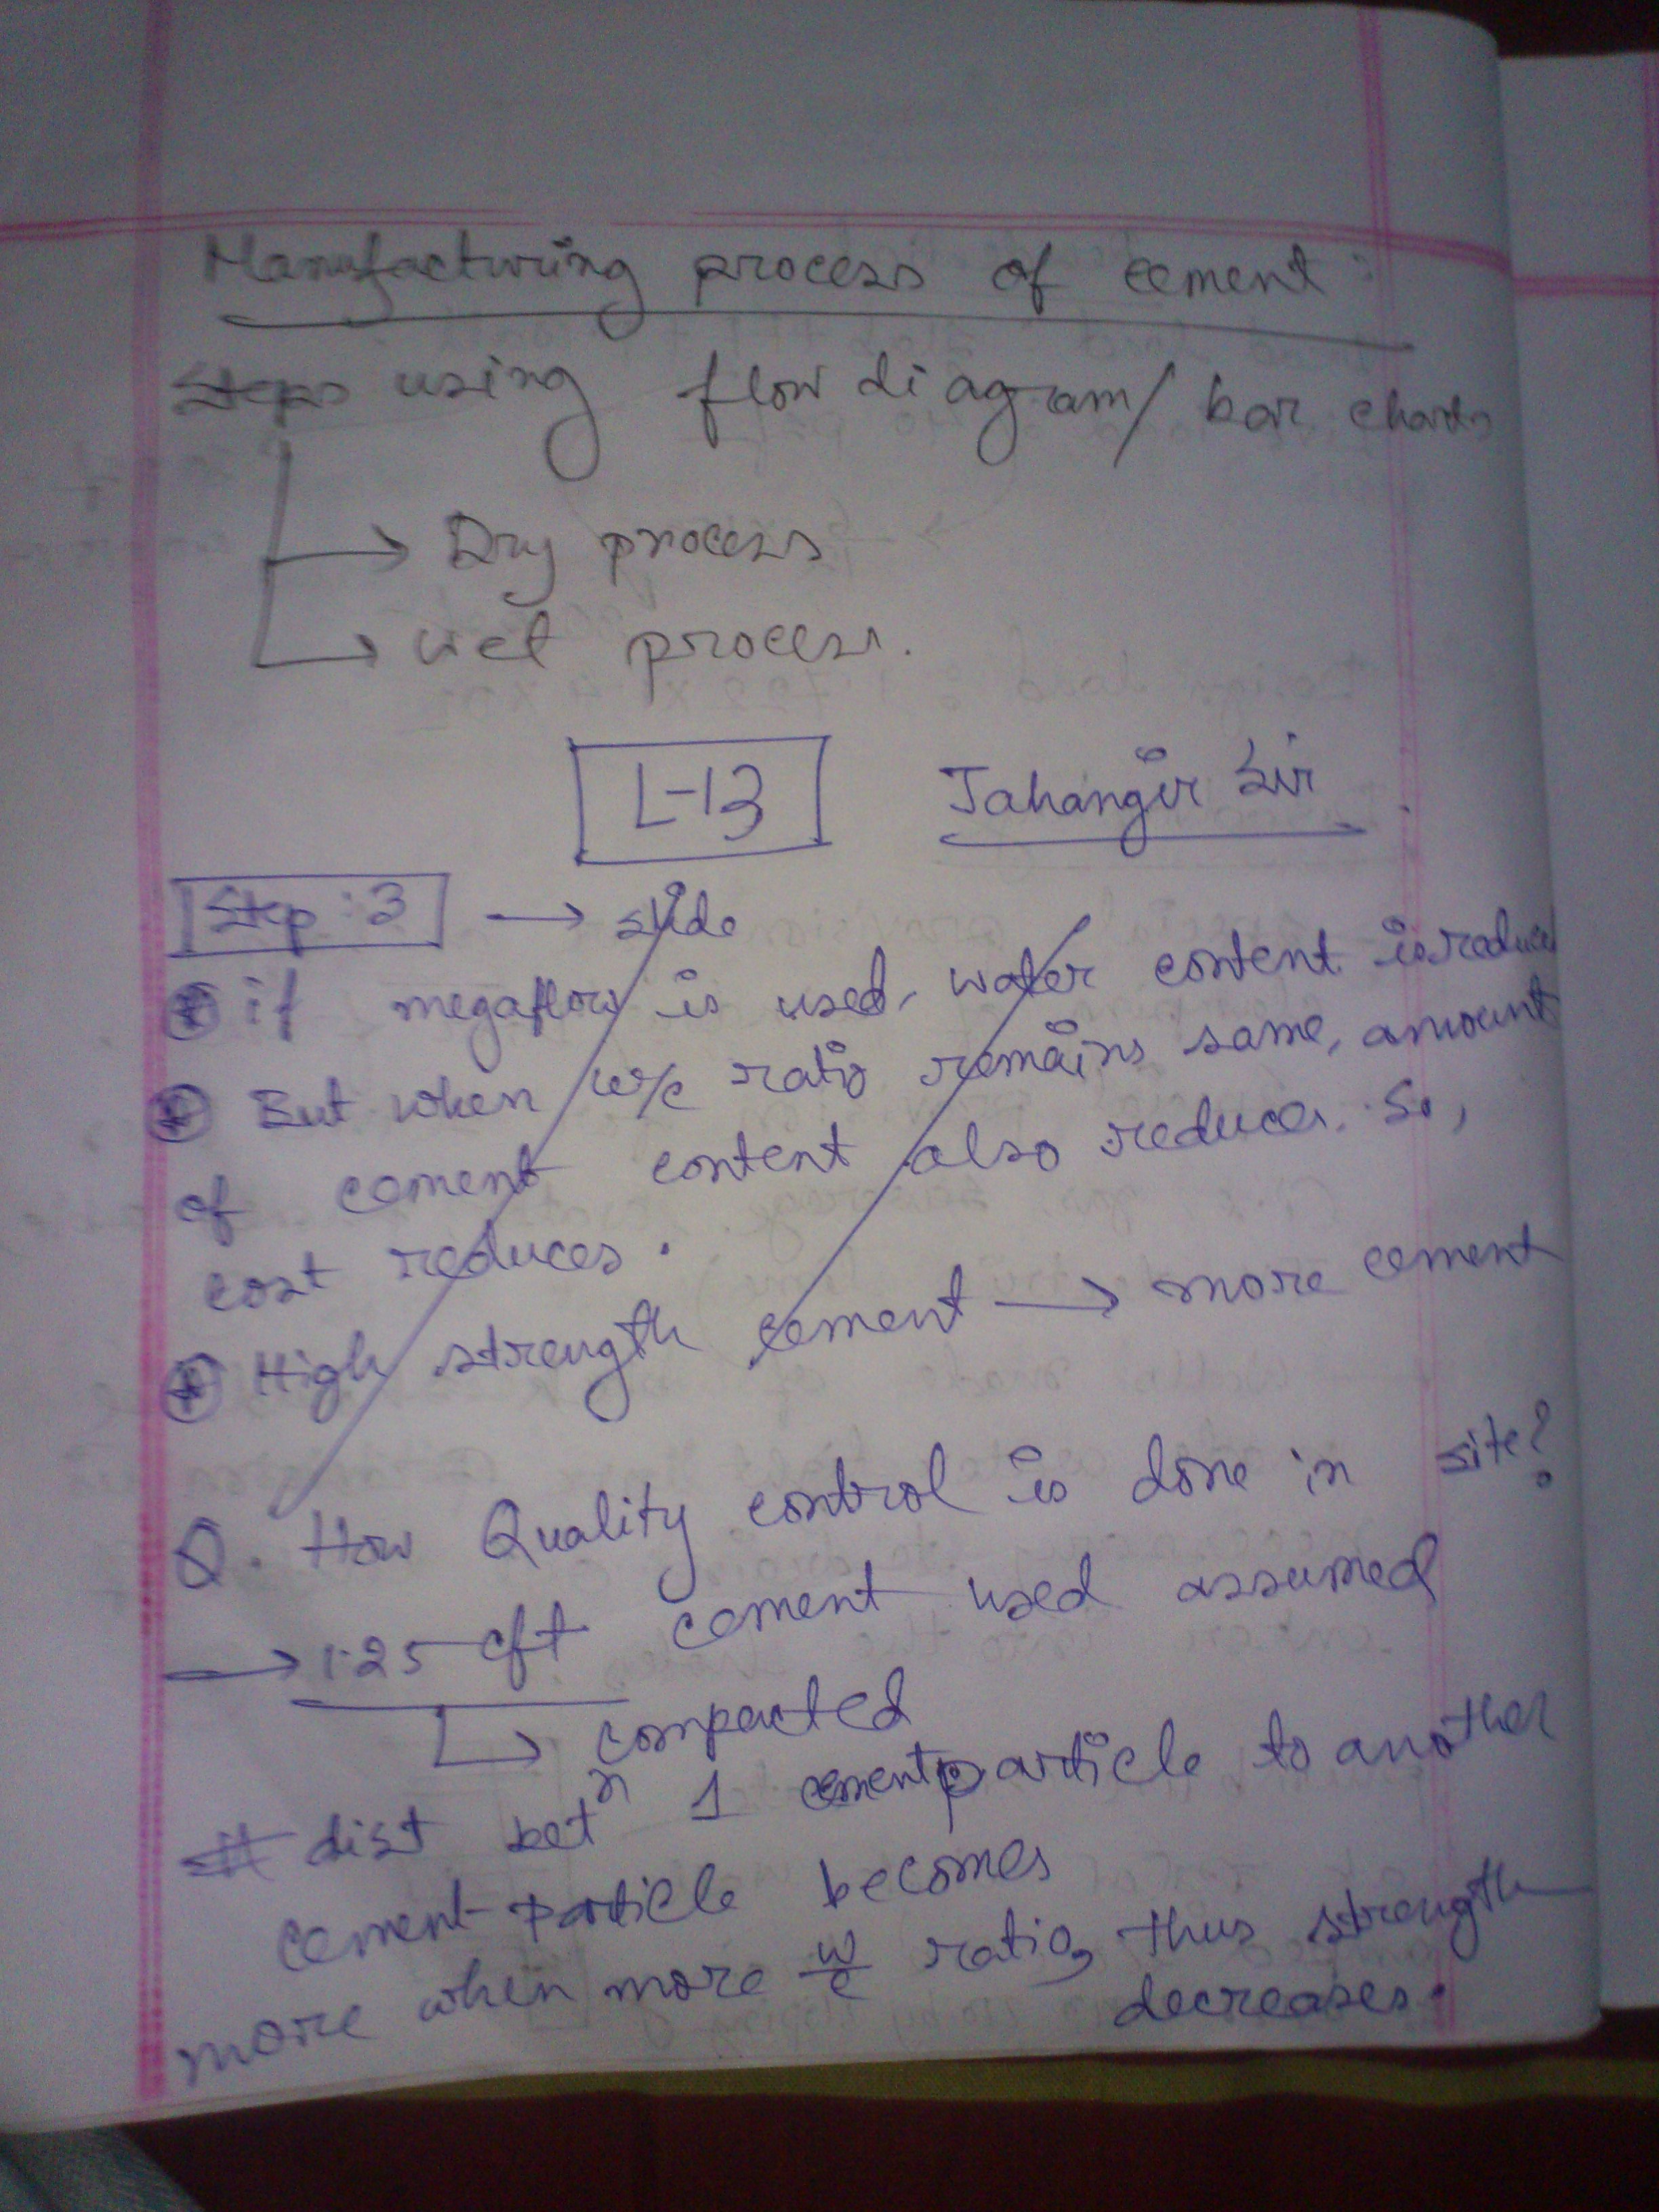 Manufacturing process of cement:
Steps using flow diagram/ bar charts
→ Dry process
→ wet process.
L-13 Jahangir Sir
Step : 3 → slide
* if megaflow is used, water content is reduced
* But when w/c ratio remains same, amount
of cement content also reduces. So,
cost reduces.
* High strength cement → more cement
Q. How Quality control is done in site?
→ 1.25 cft cement used assumed
→ compacted
# dist betⁿ 1 cement particle to another
cement particle becomes
more when more w/c ratio, thus strength
decreases.